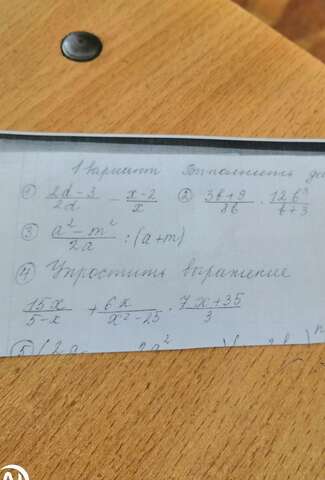 1 вариант Выполнить де
① 2x-3/2x - x-2/x ② 3b+9/8b · 12b³/b+3
③ a²-m²/2a : (a+m)
④ Упростить выражение
15x/5-x + 6x/x²-25 · 7x+35/3